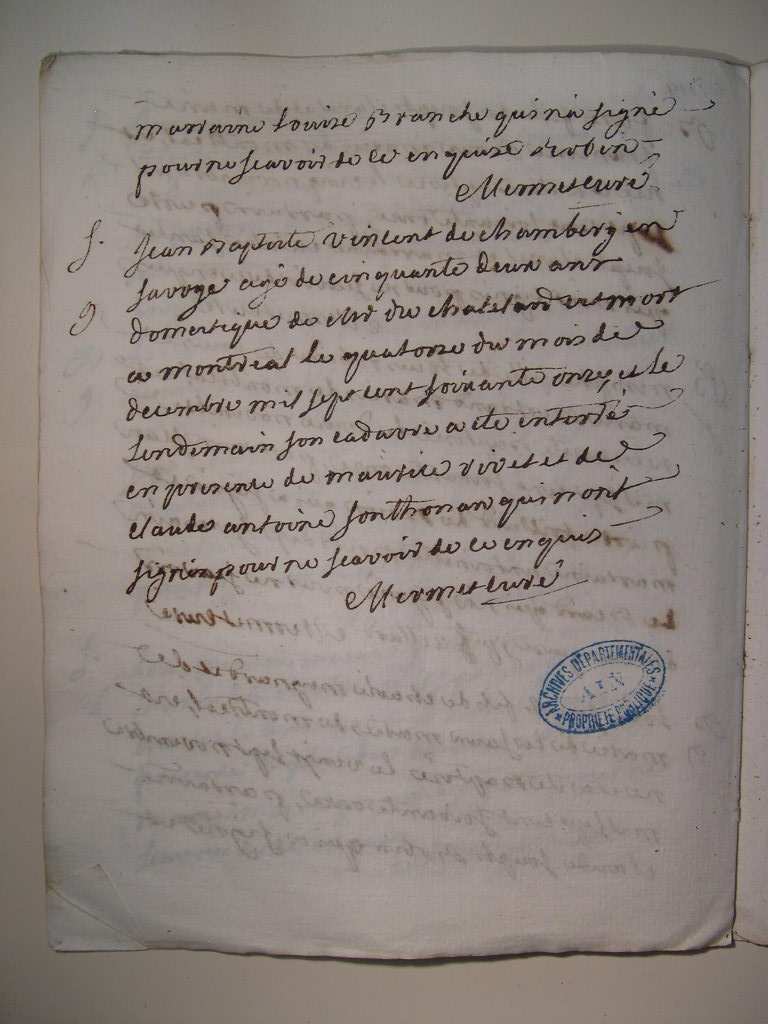 marraine Louise Branche qui na signé
pour ne scavoir de ce enquise
Mermet curé
S. Jean Baptiste vincent de chambery en
savoye agé de cinquante deux ans
9 domestique de du chateland est mort
a montreal le quatorze du mois de
decembre mil sept cent soixante onze, et le
lendemain son cadavre a ete enterré
en presence de maurice rivet et de
claude antoine sonthonax qui nont
signéz pour ne scavoir de ce enquis
Mermet curé
ARCHIVES DÉPARTEMENTALES
AIN
PROPRIÉTÉ PUBLIQUE